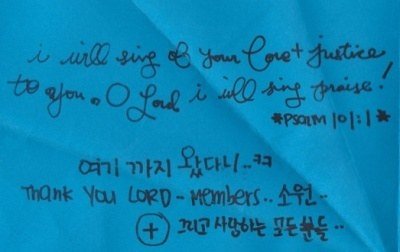 i will sing of your love + justice
to you. O Lord i will sing praise!
*PSalM 101:1*
여기 까지 왔다니..ㅋㅋ
THANK YOU LORD - MEMBERS.. 소원..
+ 그리고 사랑하는 모든분들..